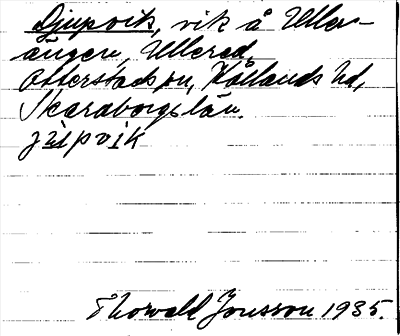 Djupvik, vik å Uller-
ängen, Ullered,
Otterstads sn, Kållands hd,
Skaraborgs län.
Thorvald Jonsson 1935.